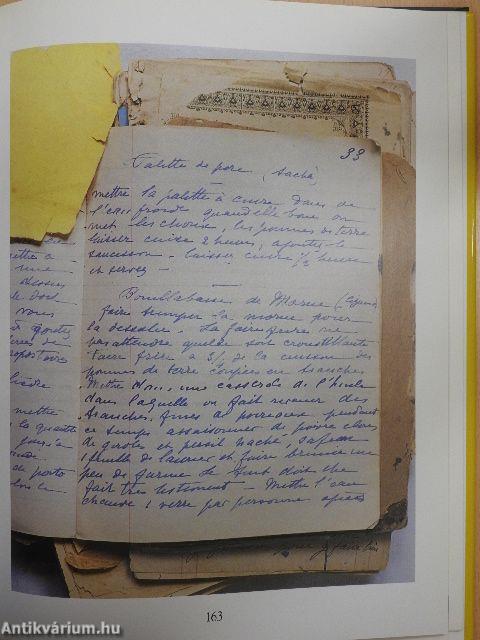 33
Palette de porc (Sacha)
mettre la palette à cuire dans de
l'eau froide quand elle bout on
met les choux, les pommes de terre
laisser cuire 2 heures, ajouter le
saucisson. laisser cuire 1/2 heure
et servez —
Bouillabaisse de Morue
faire tremper la morue pour
la dessaler. La faire frire ne
pas attendre qu'elle soit croustillante
faire frire à 3/4 de la cuisson des
pommes de terre coupées en tranches
Mettre dans une casserole de l'huile
dans laquelle on fait revenir des
tranches fines de poireaux pendant
ce temps assaisonner de poivre, clous
de girofle et persil haché, safran
1 feuille de laurier et faire brunir un
peu de farine le tout doit être
fait très lestement — Mettre l'eau
chaude 1 verre par personne après
mettre à
une
dessus
le doit
vous
de
mettre
la
de porto
le
163
Antikvárium.hu